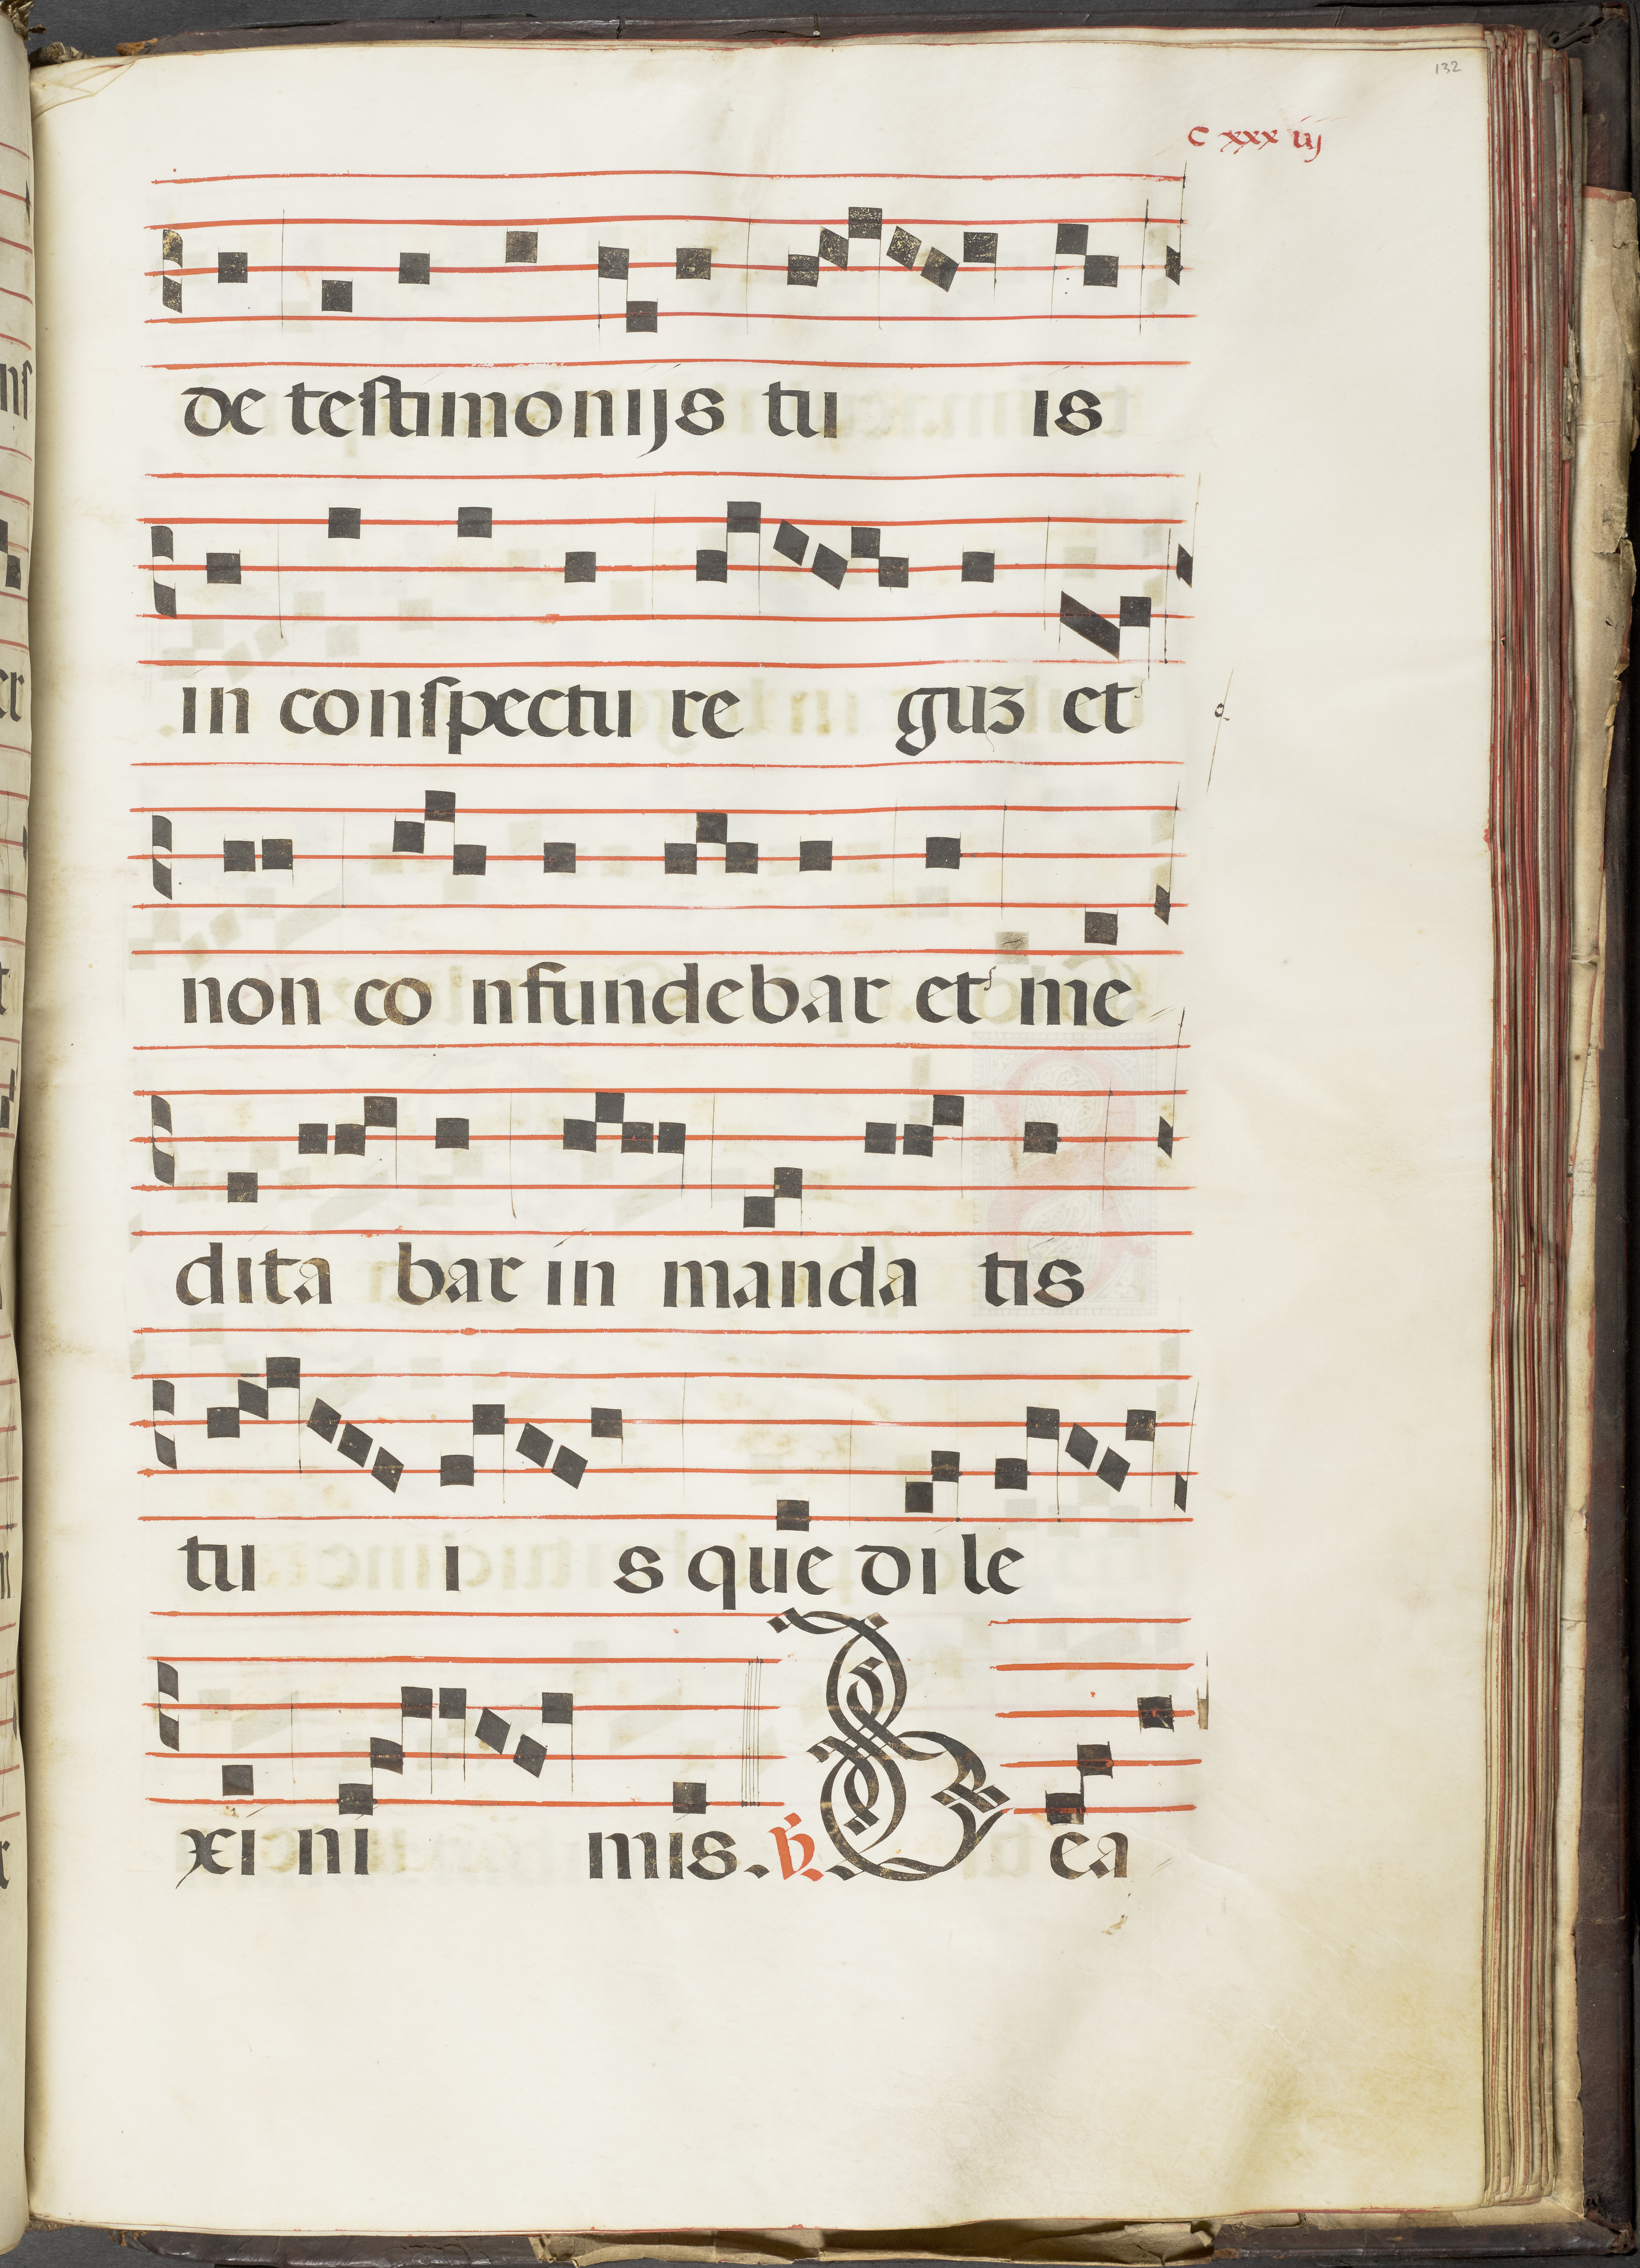 132
C xxx iij
de testimonijs tu is
in conspectu re guz et
non co nfundebar et me
dita bar in manda tis
tu i s que dile
xi ni mis. R. B ea